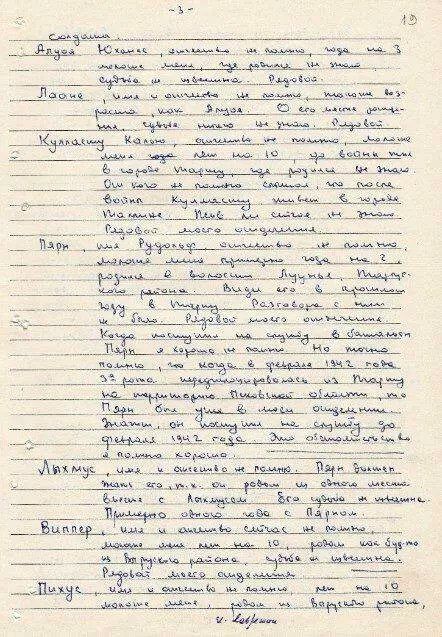 - 3 -
19
солдаты.
Алуоя Юханес, отчество не помню, года на 3
моложе меня, где родился не знаю
судьба не известна. Рядовой.
Лаане, имя и отчество не помню, такого же воз-
раста, как Алуоя. О его месте рожде-
ния, судьбе ничего не знаю. Рядовой
Куллasсту Кальо, отчество не помню, моложе
меня года лет на 10, до войны жил
в городе Тарту, где родился не знаю
От кого не помню слышал, что после
войны живет в городе
Таллине. Жив ли сейчас не знаю
Рядовой моего отделения.
Пярн, имя Рудольф отчество не помню,
моложе меня примерно года на 2,
родился в волости Луунья, Тартус-
кого района. Видел его в прошлом
году в Тарту Разговора с ним
не было. Рядовой моего отделения.
Когда поступил на службу в батальон
Пярн я хорошо не помню. Но точно
помню, что когда в феврале 1942 года
33 рота передислоцировалась из Тарту
на территорию Псковской области, то
Пярн был уже в моем отделении.
Значит, он поступил на службу до
февраля 1942 года. Это обстоятельство
я помню хорошо.
Лыхмус, имя и отчество не помню. Пярн должен
знать его, т.к. он родом из одного места
вместе с Лыхмусом. Его судьба не известна.
Примерно одного года с Пярном.
Виппер, имя и отчество сейчас не помню
моложе меня лет на 10, родом как будто
из Выруского района, судьба не известна.
Рядовой моего отделения
Пихус, имя и отчество не помню лет на 10
моложе меня, родом из выруского района,